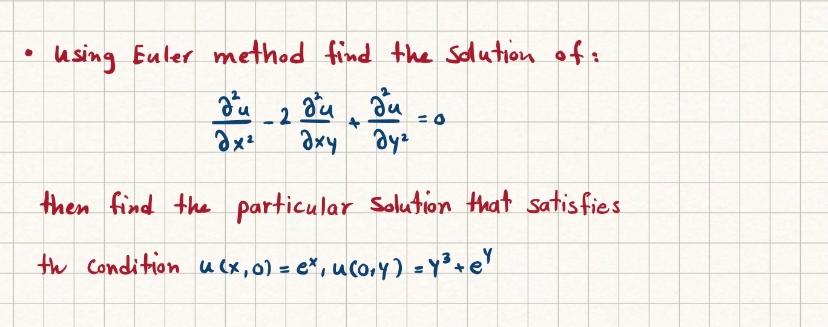 • Using Euler method find the solution of:
∂²u/∂x² - 2 ∂²u/∂xy + ∂²u/∂y² = 0
then find the particular solution that satisfies
th condition u(x,0) = eˣ, u(0,y) = y³ + eʸ